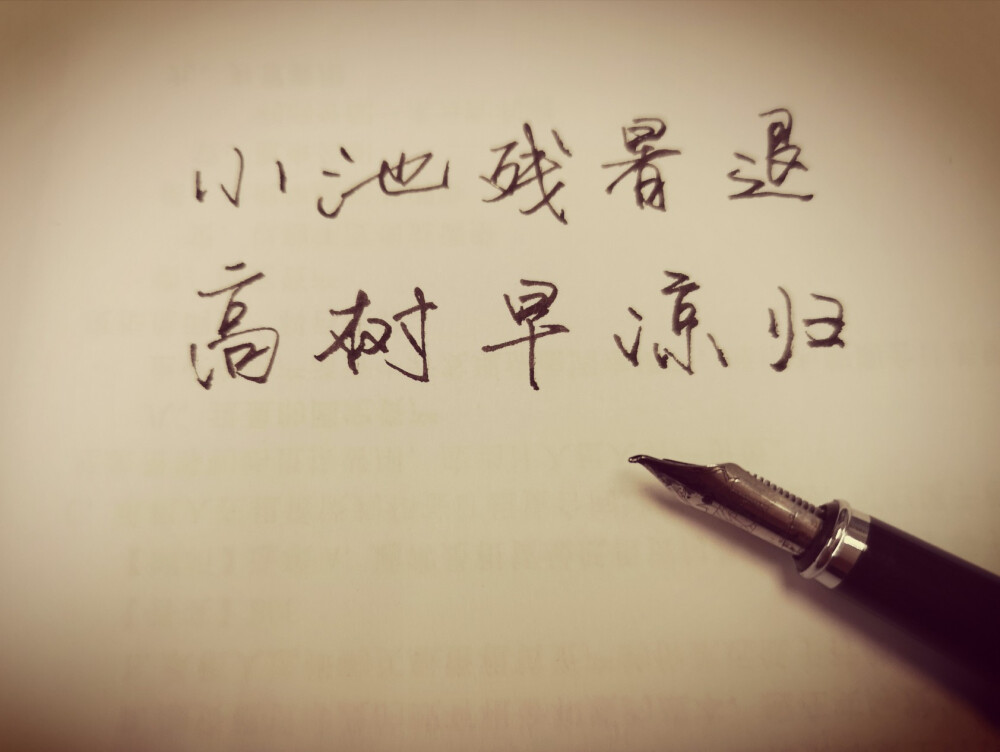 小池残暑退
高树早凉归